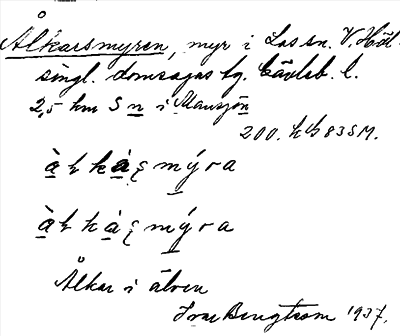 Ålkarsmyren, myr i Los sn. V. Häl-
singl. domsagas tg. Gävleb. l.
2,5 km S n i Mansjön
200. h 83 SM.
àɫkàʂmýra
àɫkàʂmýra
Ålkar i älven
Ivar Bengtsson 1937.